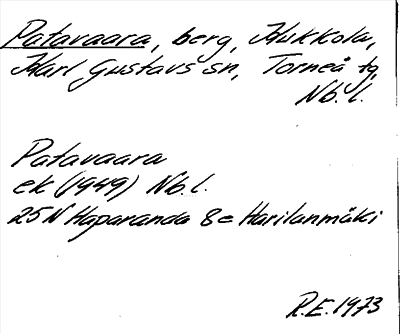 Patavaara, berg, Mukkola,
Karl Gustavs sn, Torneå tg,
Nb. l.
Patavaara
ek (1949) Nb. l.
25 N Haparanda 8e Harilanmäki
R.E. 1973